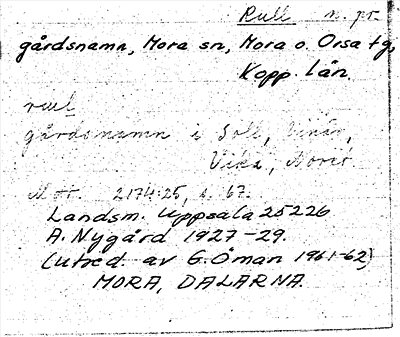 Rull n. pr.
gårdsnamn, Mora sn, Mora o. Orsa tg,
Kopp. län.
rul
gårdsnamn i Soll, Vinäs,
Vika, Noret
2174:25, s. 67.
Landsm. Uppsala 25226
A. Nygård 1927-29.
(utred. av G. Öman 1961-62)
MORA, DALARNA.